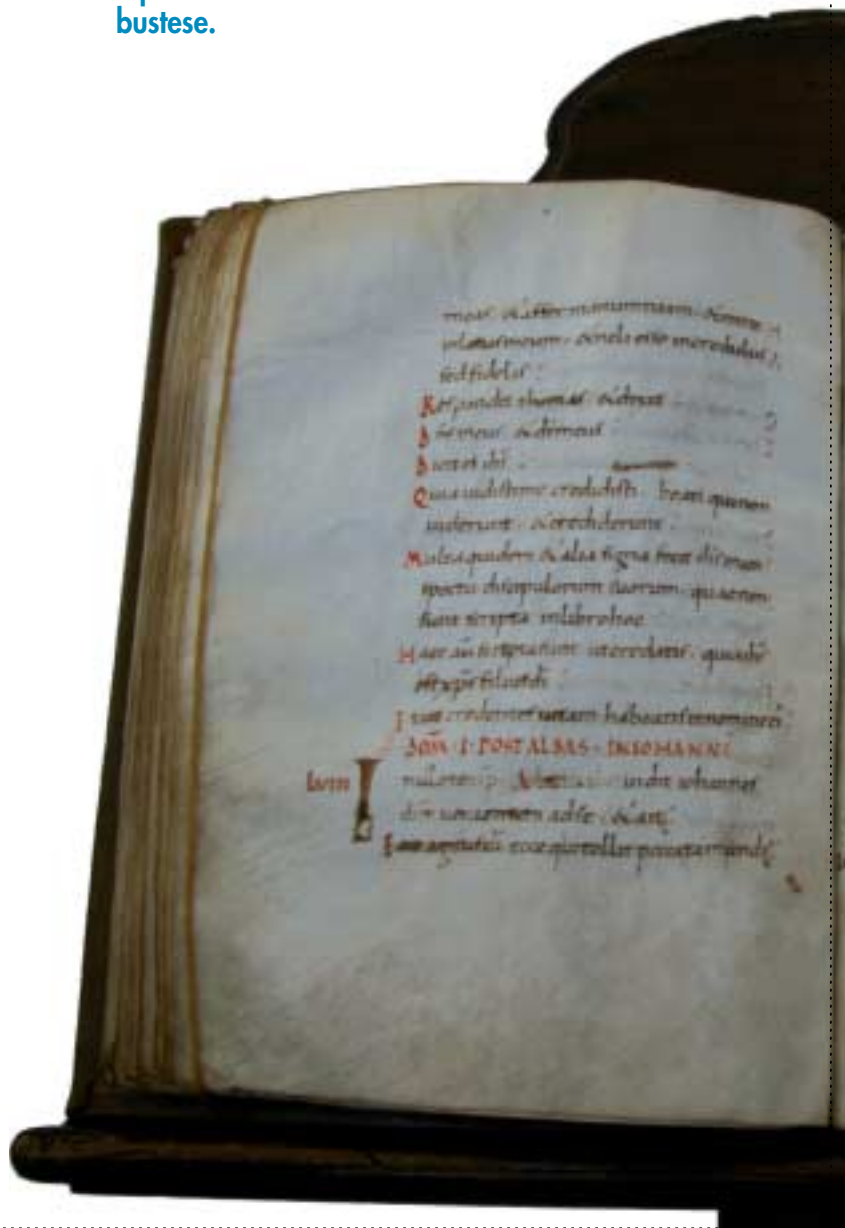 bustese.
meas & affer manum tuam & mitte
in latus meum & noli esse incredulus
sed fidelis
Respondit thomas & dixit
dns meus & ds meus
Dicit ei ihs
Quia uidisti me credidisti beati qui non
uiderunt & crediderunt
Multa quidem & alia signa fecit ihs in con
spectu discipulorum suorum quae non
sunt scripta in libro hoc
Haec au scripta sunt ut credatis quia ihs
est xps filius di
& ut credentes uitam habeatis in nomine ei
DOM I POST ALBAS IN IOHANNE
In illo temp uidit iohannes
ihm uenientem ad se & ait
Ecce agnus di ecce qui tollit peccata mundi